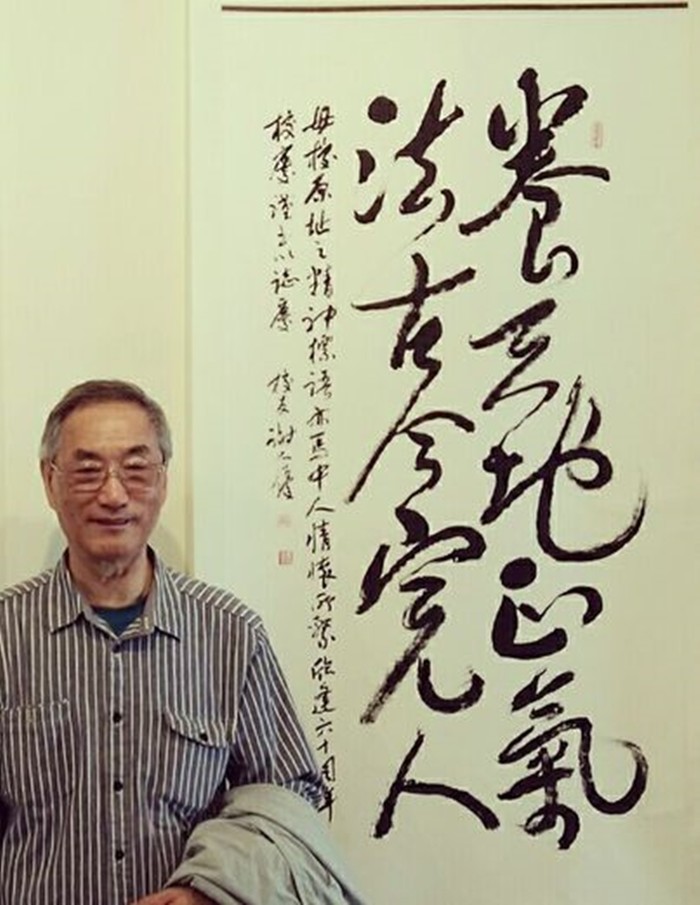 養天地正氣
法古今完人
母校原址之精神標語亦馬中人情懷所繫欣逢六十周年
校慶謹書以誌慶 校友謝